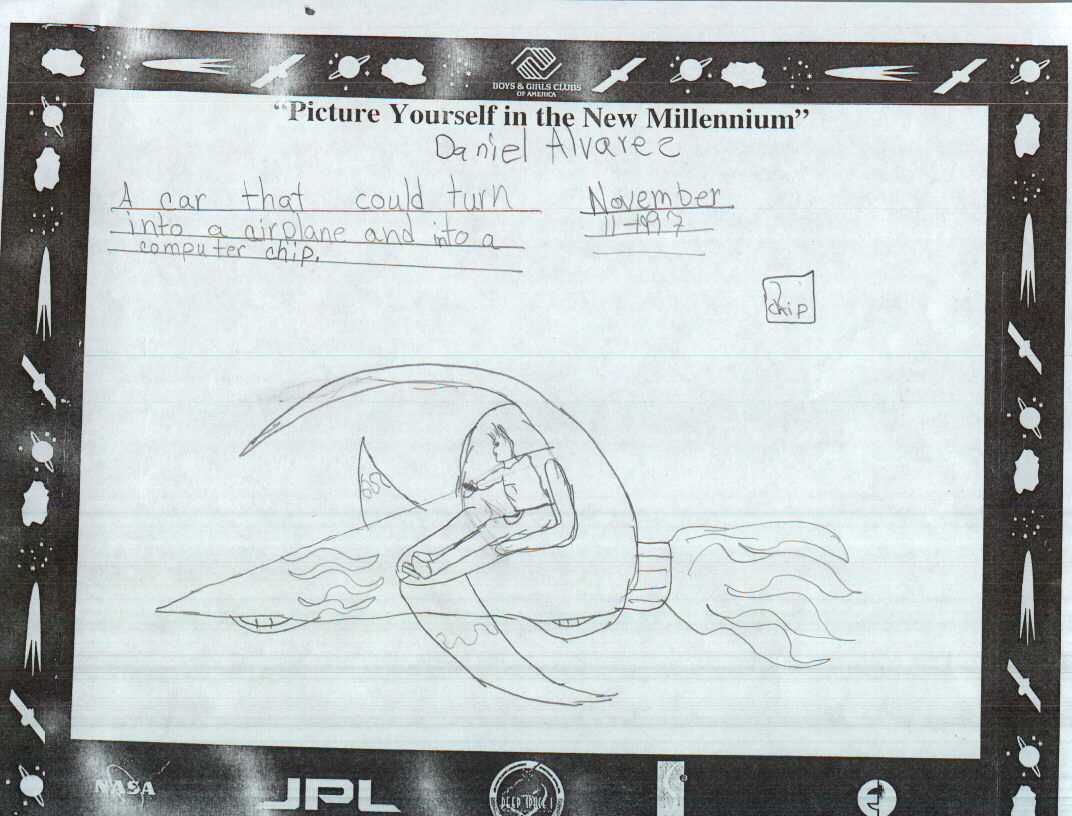 BOYS & GIRLS CLUBS
OF AMERICA
“Picture Yourself in the New Millennium”
Daniel Alvarez
A car that could turn
into a airplane and into a
computer chip.
November
11-1997
chip
NASA
JPL
DEEP SPACE 1